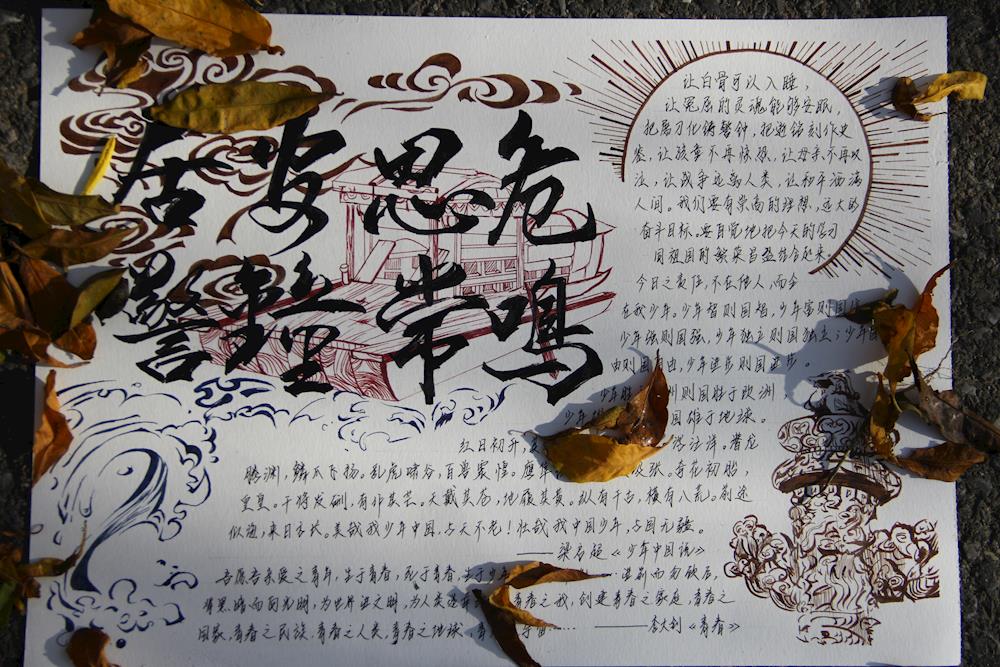 居安思危
警钟常鸣
让白骨可以入睡，
让冤屈的灵魂能够安眠，
把屠刀化铸警钟，把逝名刻作史
鉴，让孩童不再惊恐，让母亲不再叹
泣，让战争远离人类，让和平洒满
人间。我们要有崇高的理想，远大的
奋斗目标。要自觉地把今天的学习
同祖国的繁荣昌盛结合起来。
今日之责任，不在他人，而全
在我少年。少年智则国智，少年富则国
少年强则国强，少年独立则国独立；少年
由则国自由，少年进步则国进步。
少年胜 洲则国胜于欧洲
少年 国雄于地球。
红日初开， 洋。潜龙
腾渊，鳞爪飞扬。乳虎啸谷，百兽震惶。鹰隼 吸张。奇花初胎，
皇皇。干将发硎，有作其芒。天戴其苍，地履其黄。纵有千古，横有八荒。前途
似海，来日方长。美哉我少年中国，与天不老！壮哉我中国少年，与国无疆。
——梁启超《少年中国说》
吾愿吾亲爱之青年，生于青春，死于青春，生于少年
背黑暗而向光明，为世界进文明，为人类造 青春之我，创建青春之家庭，青春之
国家，青春之民族，青春之人类，青春之地球，青 宇宙……——李大钊《青春》